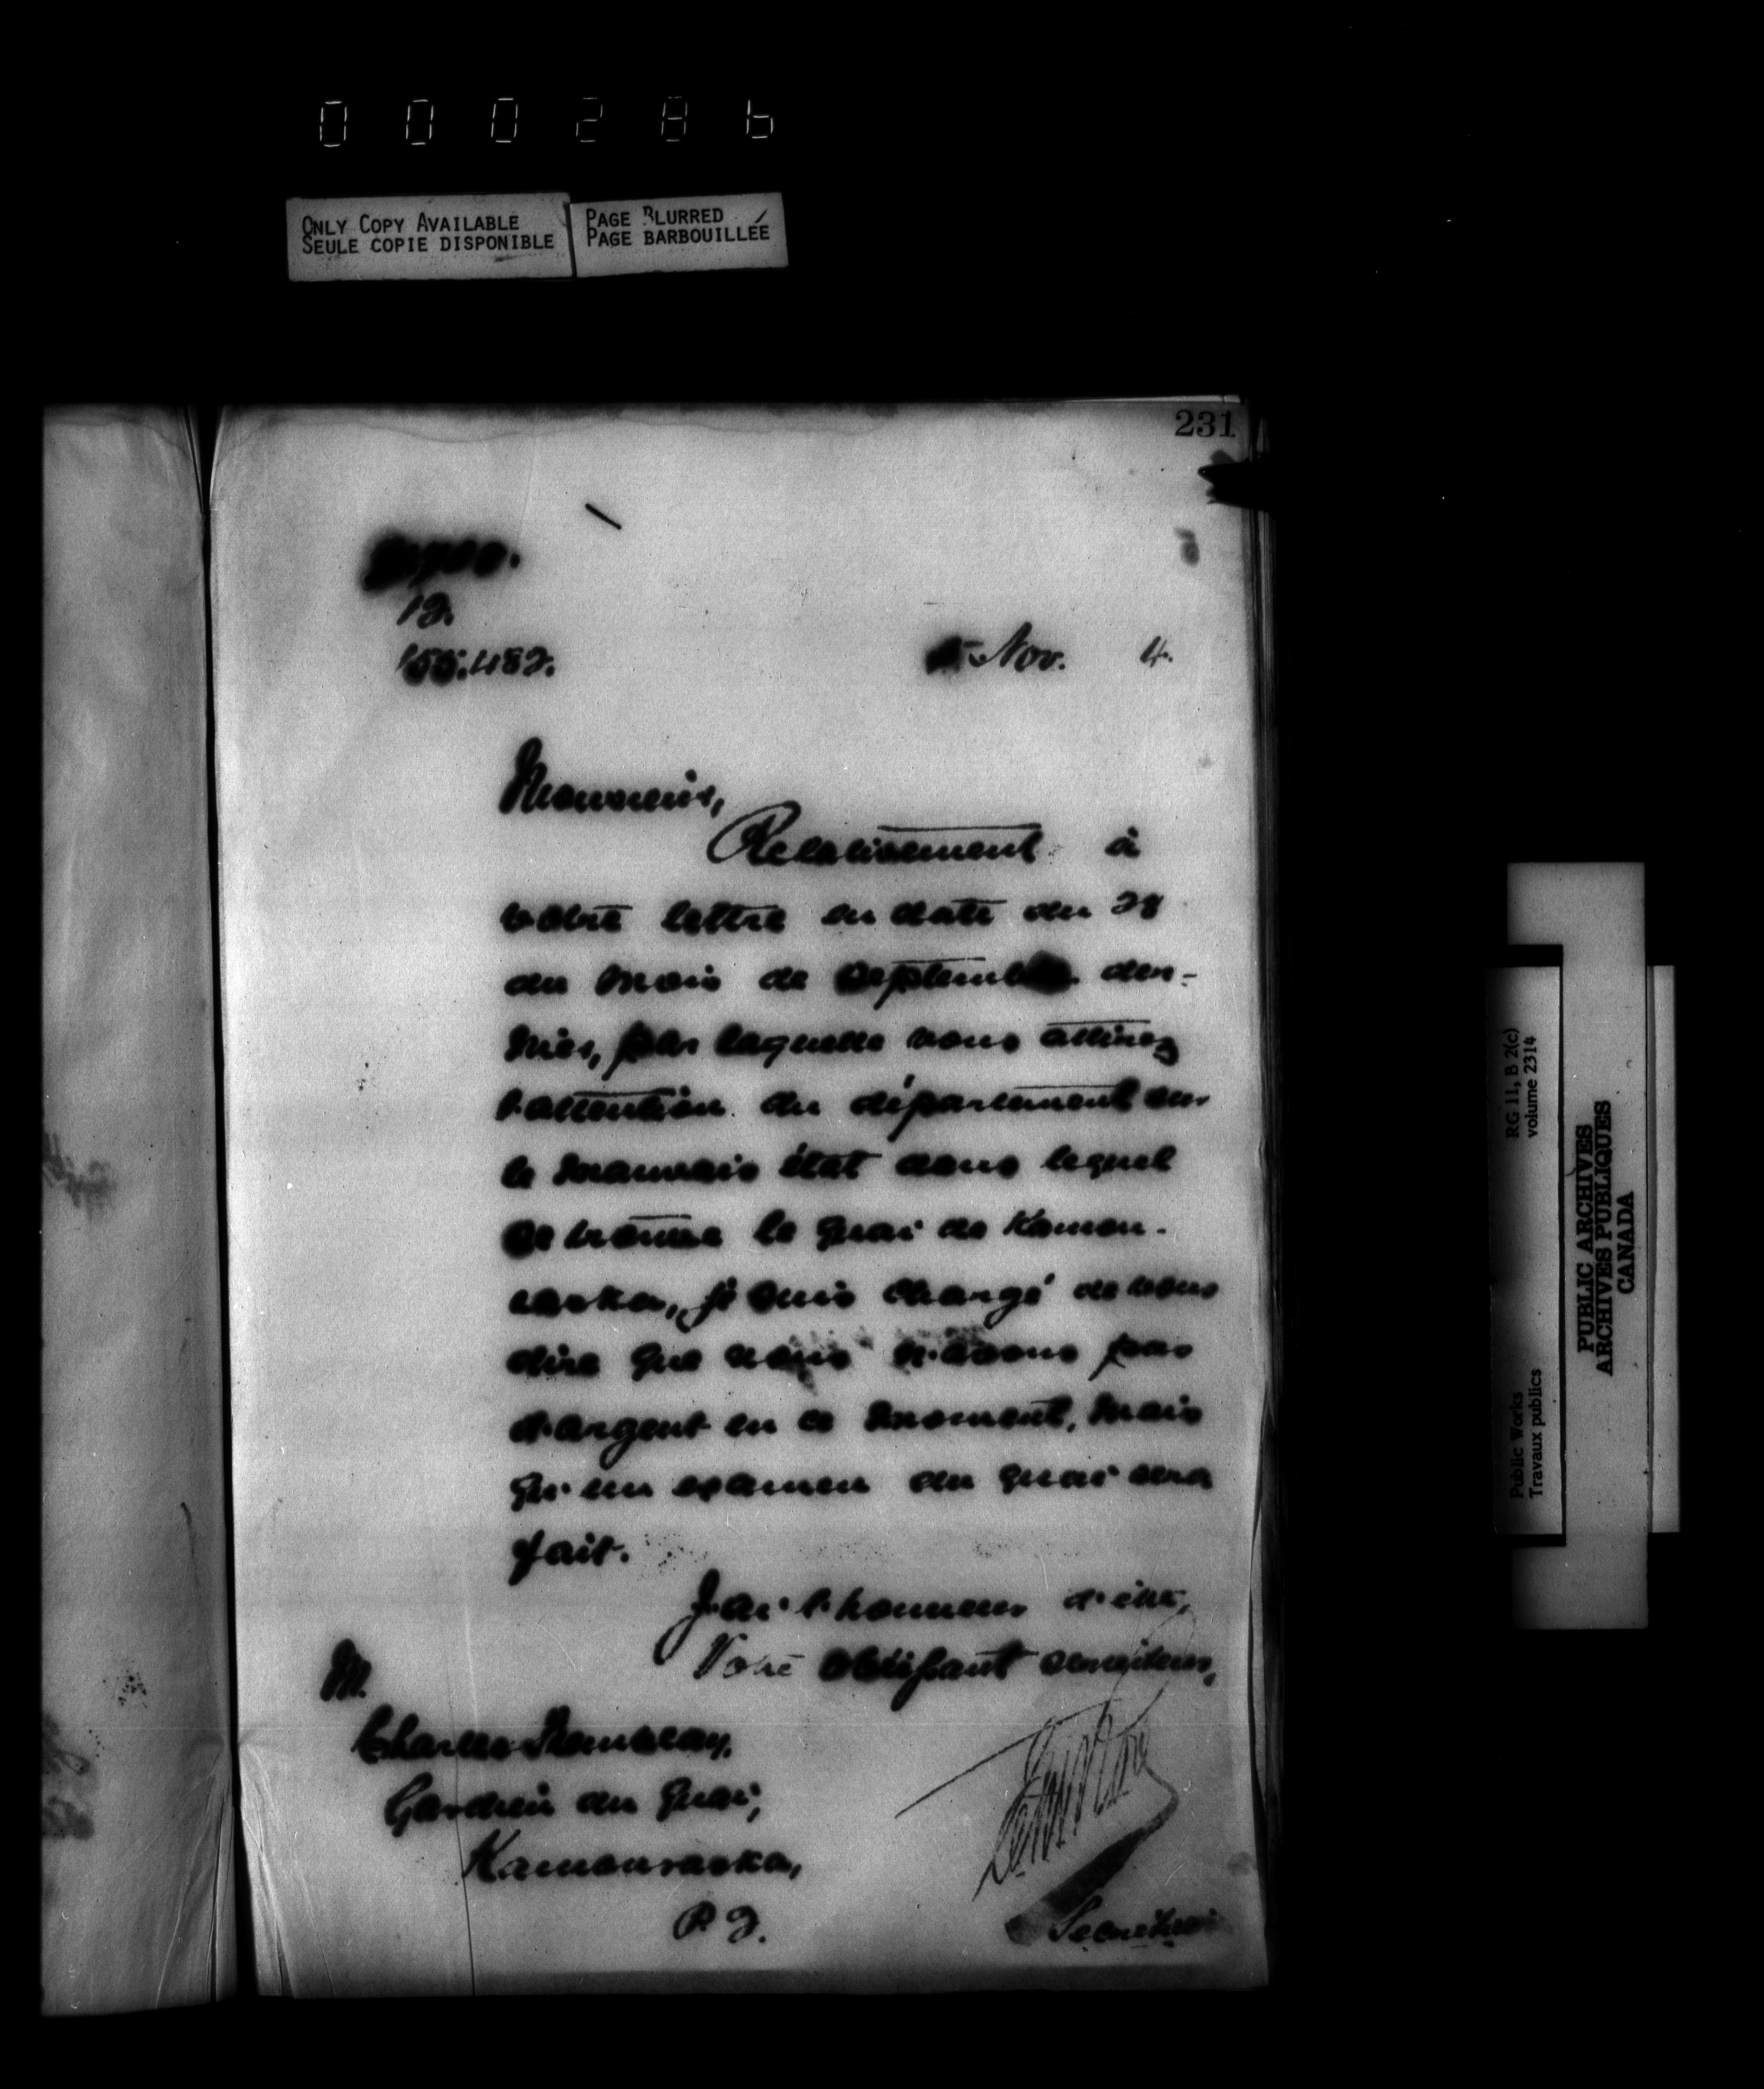 000286
ONLY COPY AVAILABLE
SEULE COPIE DISPONIBLE
PAGE BLURRED
PAGE BARBOUILLÉE
231
12.
155.482.
Nov. 4.
Monsieur,
Relativement à
votre lettre en date du 28
du mois de septembre der-
nier, par laquelle vous attirez
l'attention du département sur
le mauvais état dans lequel
se trouve le quai de Kamou-
raska, je suis chargé de vous
dire que nous n'avons pas
d'argent en ce moment, mais
qu'un examen du quai sera
fait.
J'ai l'honneur d'être,
Votre obéissant serviteur,
M.
Charles
Gardien du Quai,
Kamouraska,
P. Q.
Secrétaire
RG 11, B 2(c)
volume 2314
Public Works
Travaux publics
PUBLIC ARCHIVES
ARCHIVES PUBLIQUES
CANADA